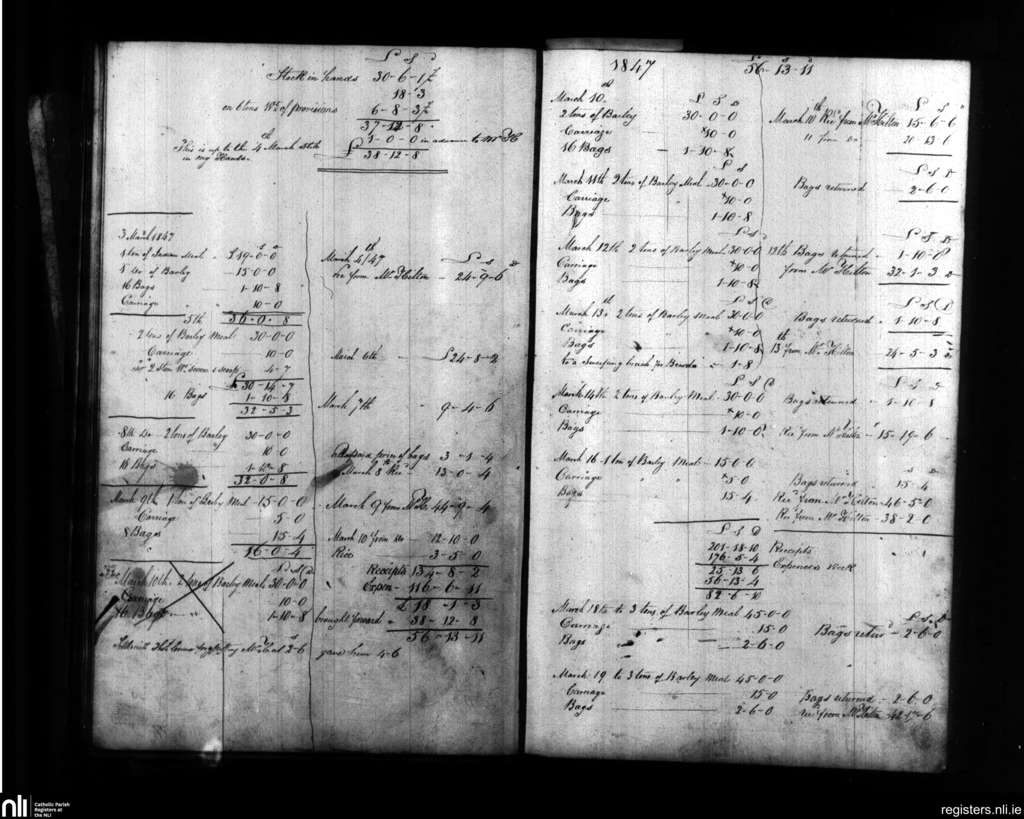 £ S D
Stock in hands 30-6-1½
18-3
on 6 tons Wt. of provisions 6-8-3½
37-12-8
1-0-0 in advance to Mr H
This is up to the 4th March Stock
in my Hands. £ 38-12-8
3 March 1847
1 ton of Indian Meal £19-0-0
1 Do of Barley 15-0-0
16 Bags 1-10-8
Carriage 10-0
36-0-8
March 4th/47 £ S D
Rec from Mr Hilton - 24-9-6
5th
2 tons of Barley Meal 30-0-0
Carriage 10-0
4-7
£30-14-7
16 Bags 1-10-8
32-5-3
March 6th £24-8-2
March 7th - 9-4-6
8th Do - 2 tons of Barley 30-0-0
Carriage 10-0
16 Bags 1-10-8
32-0-8
price of bags 3-1-4
March 8th Recd 13-0-4
March 9th 1 ton of Barley Meal - 15-0-0
Carriage 5-0
8 Bags 15-4
16-0-4
March 9 from Mr H. 44-9-4
March 10 from Do - 12-10-0
Rice - 3-5-0
£ S D
March 10th - 2 tons of Barley Meal 30-0-0
Carriage 10-0
16 Bags 1-10-8
Receipts 134-8-2
Expen - 116-6-11
£ 18-1-3
brought forward - 38-12-8
56-13-11
2-6 gave him 4-6
1847 £ S D
56-13-11
March 10th £ S D
2 tons of Barley 30-0-0
Carriage 10-0
16 Bags 1-10-8
March 10th Recd from Mr Hilton 15-6-6
11 from Do 20-13-0
£ S
March 11th 2 tons of Barley Meal - 30-0-0
Carriage 10-0
Bags 1-10-8
£ S D
Bags returned - 2-6-0
March 12th 2 tons of Barley Meal 30-0-0
Carriage 10-0
Bags 1-10-8
£ S D
12th Bags returned - 1-10-8
from Mr Hilton 32-1-3
March 13th 2 tons of Barley Meal 30-0-0
Carriage 10-0
Bags 1-10-8
to a Sweeping brush for 1-8
£ S D
Bags returned - 1-10-8
13th from Mr Hilton 24-5-3
March 14th 2 tons of Barley Meal - 30-0-0
Carriage 10-0
Bags 1-10-0
£ S D
Bags returned - 1-10-8
Rec from Mr Hilton - 15-19-6
March 16 - 1 ton of Barley Meal - 15-0-0
Carriage 5-0
Bags 15-4
Bags returned - 15-4
Recd from Mr Hilton - 46-5-0
Recd from Mr Hilton - 38-2-0
£ S D
201-18-10 Receipts
176-5-4 Expences
25-13-6
56-13-4
82-6-10
March 18th to 3 tons of Barley Meal 45-0-0
Carriage 15-0
Bags 2-6-0
£ S D
Bags retur - 2-6-0
March 19 to 3 tons of Barley Meal 45-0-0
Carriage 15-0
Bags 2-6-0
Bags returned - 2-6-0
rec from Mr Hilton
nli
Catholic Parish
Registers at
the NLI
registers.nli.ie